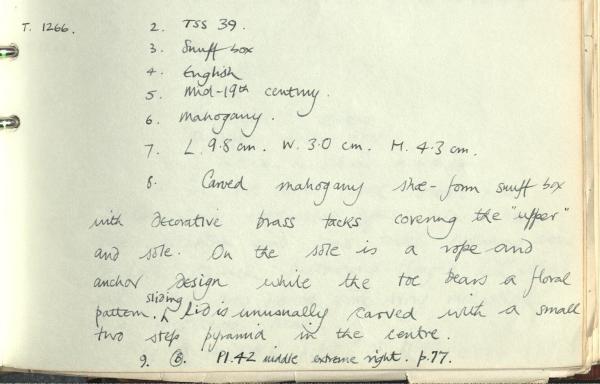 T. 1266. 2. TSS 39.
3. Snuff box
4. English
5. Mid-19th century.
6. Mahogany.
7. L. 9.8 cm. W. 3.0 cm. H. 4.3 cm.
8. Carved mahogany shoe-form snuff box
with decorative brass tacks covering the "upper"
and sole. On the sole is a rope and
anchor design while the toe bears a floral
pattern. sliding Lid is unusually carved with a small
two step pyramid in the centre.
9. ⑧. Pl.42 middle extreme right. p.77.